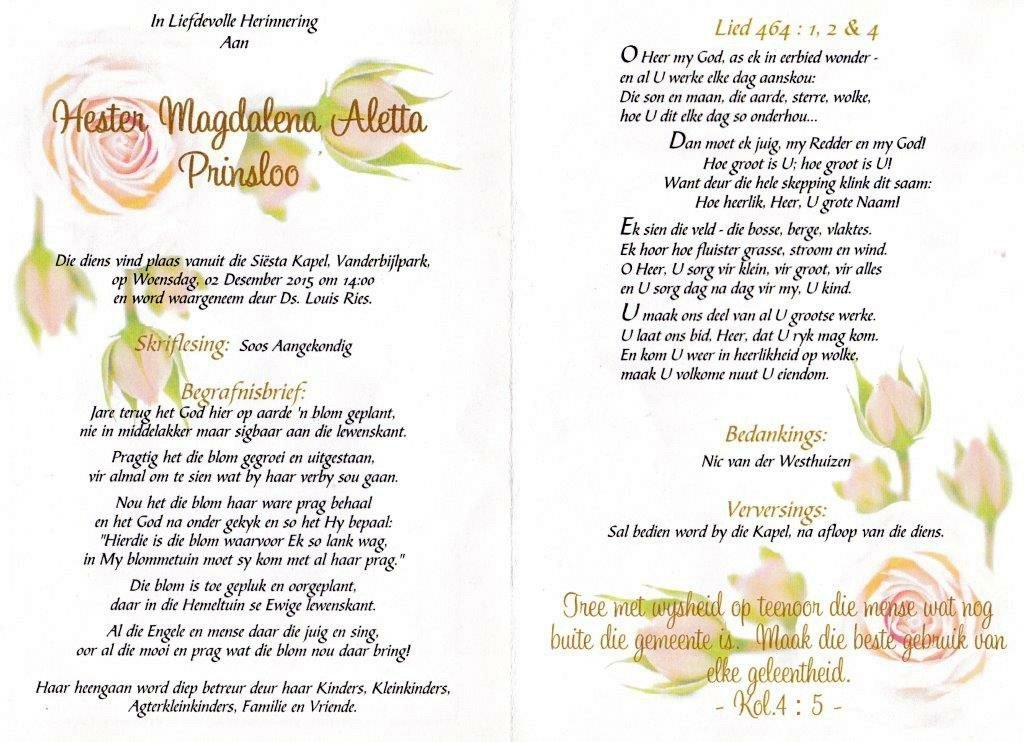 In Liefdevolle Herinnering
Aan
Hester Magdalena Aletta
Prinsloo
Die diens vind plaas vanuit die Siësta Kapel, Vanderbijlpark,
op Woensdag, 02 Desember 2015 om 14:00
en word waargeneem deur Ds. Louis Ries.
Skriflesing: Soos Aangekondig
Begrafnisbrief:
Jare terug het God hier op aarde 'n blom geplant,
nie in middelakker maar sigbaar aan die lewenskant.
Pragtig het die blom gegroei en uitgestaan,
vir almal om te sien wat by haar verby sou gaan.
Nou het die blom haar ware prag behaal
en het God na onder gekyk en so het Hy bepaal:
"Hierdie is die blom waarvoor Ek so lank wag,
in My blommetuin moet sy kom met al haar prag."
Die blom is toe gepluk en oorgeplant,
daar in die Hemeltuin se Ewige lewenskant.
Al die Engele en mense daar die juig en sing,
oor al die mooi en prag wat die blom nou daar bring!
Haar heengaan word diep betreur deur haar Kinders, Kleinkinders,
Agterkleinkinders, Familie en Vriende.
Lied 464 : 1, 2 & 4
O Heer my God, as ek in eerbied wonder -
en al U werke elke dag aanskou:
Die son en maan, die aarde, sterre, wolke,
hoe U dit elke dag so onderhou...
Dan moet ek juig, my Redder en my God!
Hoe groot is U; hoe groot is U!
Want deur die hele skepping klink dit saam:
Hoe heerlik, Heer, U grote Naam!
Ek sien die veld - die bosse, berge, vlaktes.
Ek hoor hoe fluister grasse, stroom en wind.
O Heer, U sorg vir klein, vir groot, vir alles
en U sorg dag na dag vir my, U kind.
U maak ons deel van al U grootse werke.
U laat ons bid, Heer, dat U ryk mag kom.
En kom U weer in heerlikheid op wolke,
maak U volkome nuut U eiendom.
Bedankings:
Nic van der Westhuizen
Verversings:
Sal bedien word by die Kapel, na afloop van die diens.
Tree met wysheid op teenoor die mense wat nog
buite die gemeente is. Maak die beste gebruik van
elke geleentheid.
- Kol.4 : 5 -